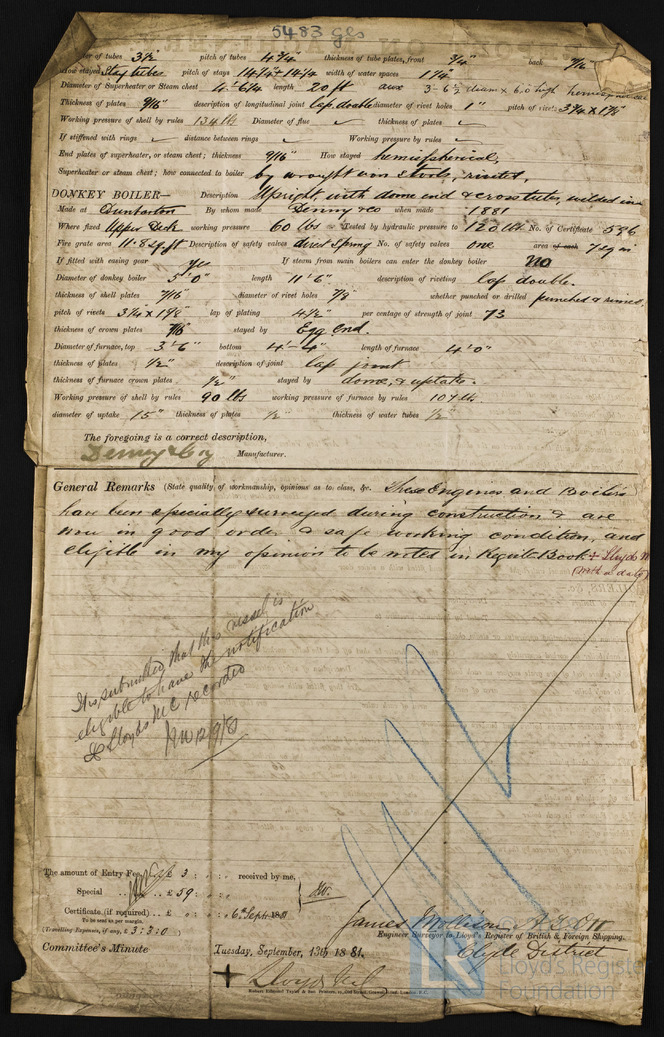 5483 gls
of tubes 3½ pitch of tubes 4¾ thickness of tube plates, front ¾" back 9/16
How stayed Stay tubes pitch of stays width of water spaces 1¼"
Diameter of Superheater or Steam chest length 20 ft
Thickness of plates 9/16" description of longitudinal joint lap double diameter of rivet holes 1" pitch of rivets
Working pressure of shell by rules 134 lbs Diameter of flue thickness of plates
If stiffened with rings distance between rings Working pressure by rules
End plates of superheater, or steam chest; thickness 9/16" How stayed hemispherical,
Superheater or steam chest; how connected to boiler by wrought iron stools, riveted,
DONKEY BOILER— Description Upright, with dome end & cross tubes, welded in
Made at Dumbarton By whom made Denny & Co when made 1881
Where fixed Upper Deck working pressure 60 lbs Tested by hydraulic pressure to 120 lbs No. of Certificate 586
Fire grate area 11.8 sq ft Description of safety valves direct Spring No. of safety valves one area of each 7 sq in
If fitted with easing gear yes If steam from main boilers can enter the donkey boiler no
Diameter of donkey boiler 5'-0" length 11'6" description of riveting lap double.
thickness of shell plates 7/16" diameter of rivet holes 7/8 whether punched or drilled punched & rimed
pitch of rivets lap of plating 4½" per centage of strength of joint 73
thickness of crown plates stayed by Egg end.
Diameter of furnace, top 3'-6" bottom 4'-4" length of furnace 4'0"
thickness of plates ½" description of joint lap joint
thickness of furnace crown plates ½" stayed by dome, & uptake.
Working pressure of shell by rules 90 lbs working pressure of furnace by rules 107 lb
diameter of uptake 15" thickness of plates ½ thickness of water tubes ½"
The foregoing is a correct description,
Denny & Coy Manufacturer.
General Remarks (State quality of workmanship, opinions as to class, &c. These Engines and Boilers
have been specially surveyed during construction & are
now in good order & safe working condition, and
eligible in my opinion to be noted in Register Book + Lloyds M
(with a date)
It is submitted that this vessel is
eligible to have the notification
& Lloyds M C recorded
The amount of Entry Fee £ 3 : : received by me,
Special £ 59 : :
Certificate (if required) .. £ : : 6th Sept. 1881
To be sent as per margin.
(Travelling Expenses, if any, £ 3:3:0)
James Mollison
Engineer Surveyor to Lloyd's Register of British & Foreign Shipping.
Clyde District
Committee's Minute Tuesday, September, 13th 1881.
+ Lloyds M.C.
Lloyd's Register
Foundation